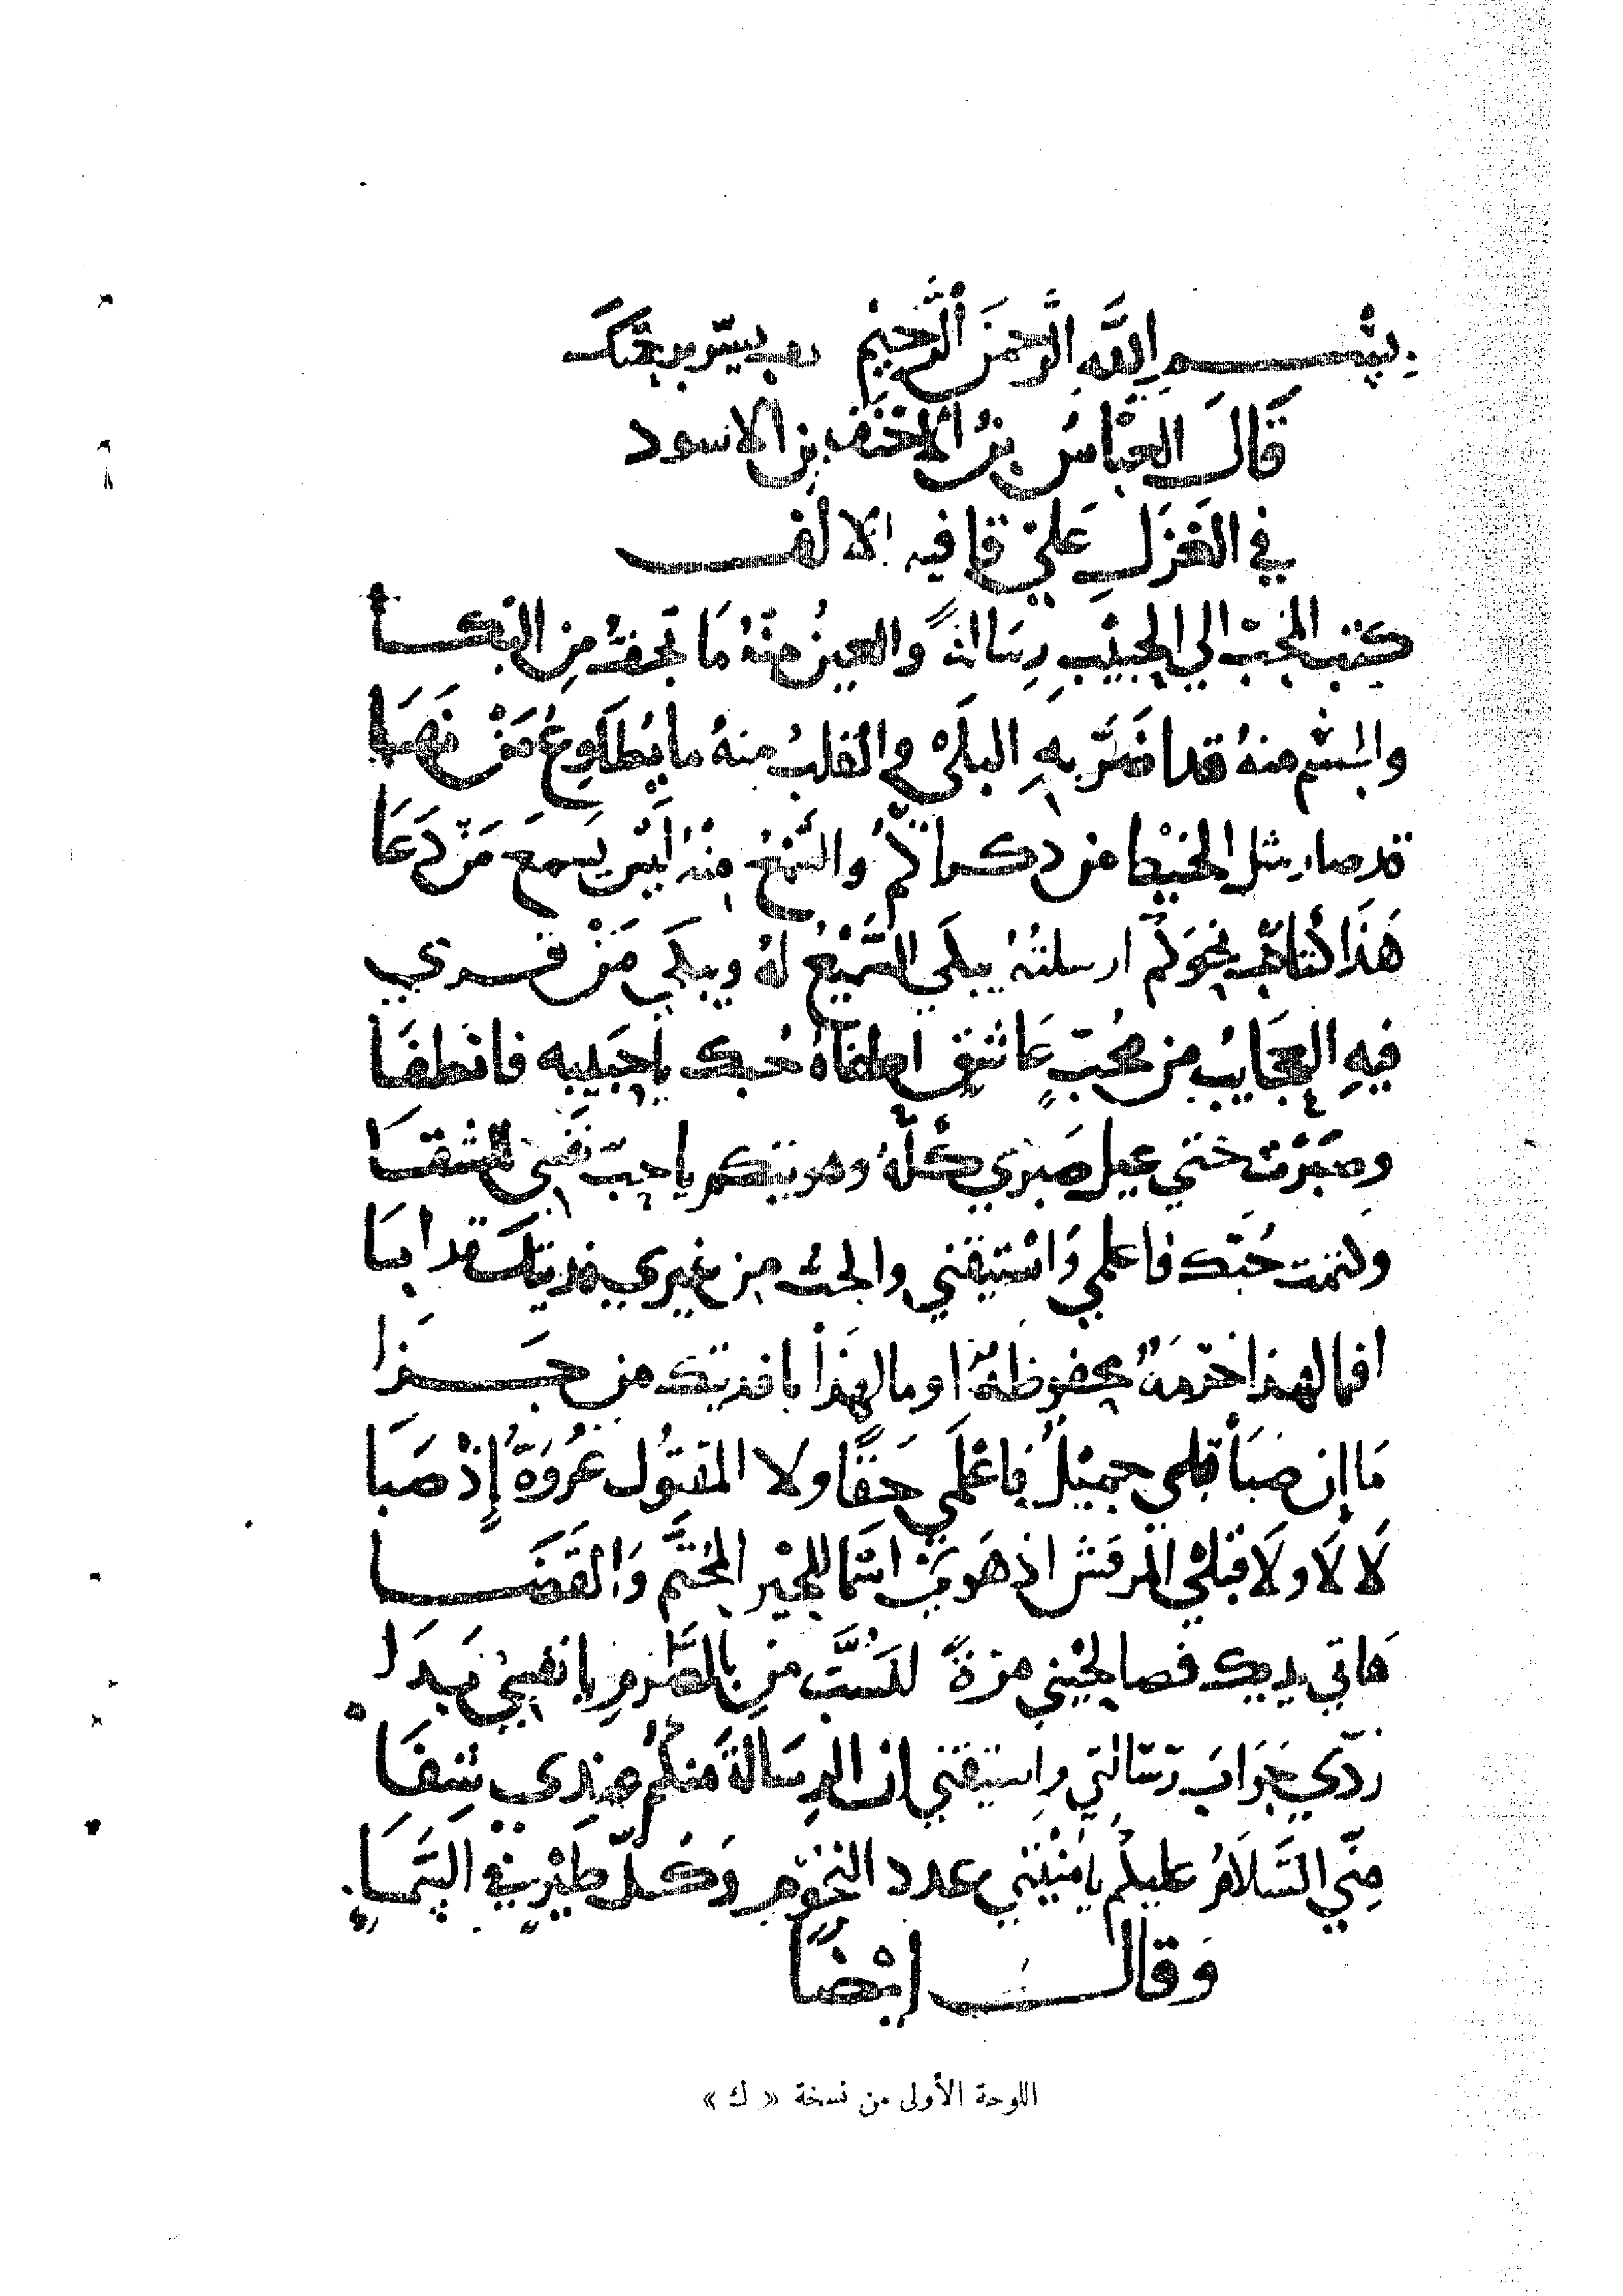 بِسْمِ اللَّهِ الرَّحمَنِ الرَّحِيْمِ رب يسّر برحمتك
قَالَ العَبَّاسُ بنُ الأَحْنَفِ بن الاسود
في الغَزَلِ عَلَى قافيه الالف
كتب المحبّ الى الحبيب رِسَالةً والعين منهُ مَا تجفّ مِن البكا
والجسْم منهُ قد اضَرَّ بهِ البلَى والقلبُ منهُ ما يُطاوِعُ مَنْ نَهَىا
قد صار مثل الخيط من ذكراكُمُ والسَّمْعُ مِنْهُ لَيْس يَسمعَ مَن دَعَا
هَذَا كتابٌ نحوَكُمْ ارسلتُهُ يبكي السَّمِيْعُ لهُ ويبكي مَنْ قرى
فيهِ العجَايبُ من محُبّ عَاشق اطفاهُ حُبك يا حَبيبه فانطفَا
وصَبَرْت حتى عيل صَبْري كُلّهُ وهويتكم يا حِبّ نفسى للشقَا
وكتمت حُبّك فاعلمي وَاسْتيقني والحبّ من غيري فديتك قد ابَا
افما لهذا حُرمَةٌ محفوظَةٌ اوما لهذَا يا فديتك من جَزا
مَا إن صَبَا قبلي جميْلٌ فاعْلَمي حَقًا ولا المقتُول عُرْوَةُ إِذْ صَبَا
لَا لَا ولَا قبلي المرقش اذ هَوِيَ اسما للحيْن المُحتَّم وَالقَضَا
هَاتي يديك فصالحيْني مرّةً للَسْتُ من بالصَّرْمِ يا نفسِى بَدَا
رُدّي جَوَابَ رسَالتي واستيقني ان الرِسَالَةَ مِنكُمُ عِندِي شِفَا
مِنّي السَّلَامُ عليكُم يا مُنْيَتي عدد النجُوم وَكُلّ طَيْرٍ في السَّمَا
وَقَالَ ايْضًا
اللوحة الأولى من نسخة « ك »